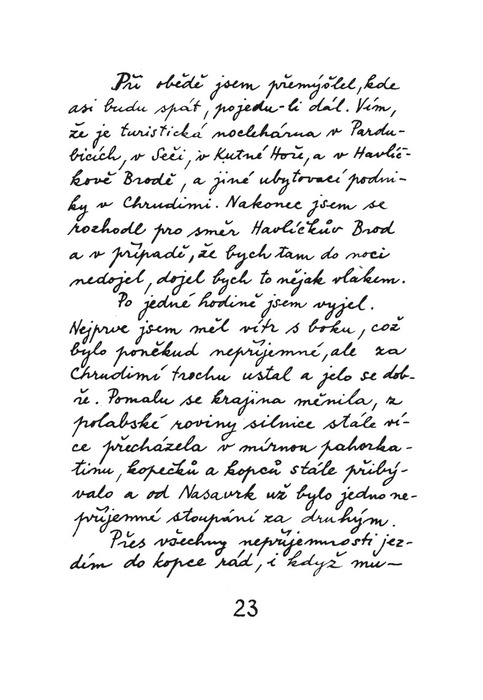 Při obědě jsem přemýšlel, kde
asi budu spát, pojedu-li dál. Vím,
že je turistická noclehárna v Pardu-
bicích, v Seči, v Kutné Hoře, a v Havlíč-
kově Brodě, a jiné ubytovací podni-
ky v Chrudimi. Nakonec jsem se
rozhodl pro směr Havlíčkův Brod
a v případě, že bych tam do noci
nedojel, dojel bych to nějak vlakem.
Po jedné hodině jsem vyjel.
Nejprve jsem měl vítr s boku, což
bylo poněkud nepříjemné, ale za
Chrudimí trochu ustal a jelo se dob-
ře. Pomalu se krajina měnila, z
polabské roviny silnice stále ví-
ce přecházela v mírnou pahorka-
tinu, kopečků a kopců stále přibý-
valo a od Nasavrk už bylo jedno ne-
příjemné stoupání za druhým.
Přes všechny nepříjemnosti jez-
dím do kopce rád, i když mu-
23